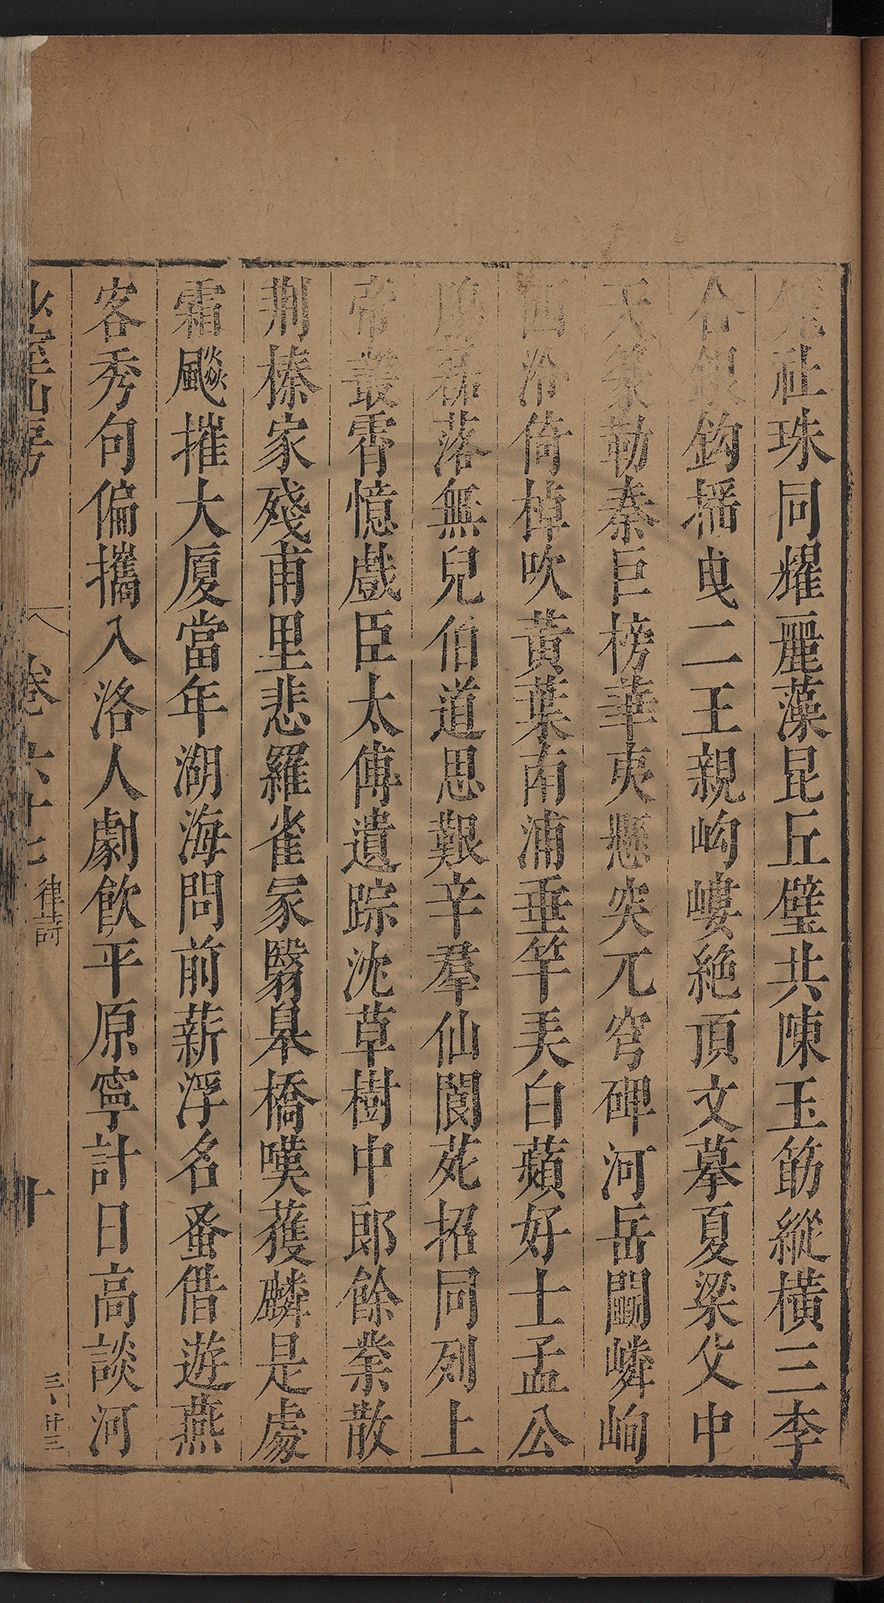 社珠同耀麗藻昆丘璧共陳玉筯縱橫三李
合銀鈎播曳二王親岣嶁絶頂文摹夏梁父中
天篆勒秦巨榜華夷懸突兀穹碑河岳鬬嶙峋
西泠倚棹吹黃葉南浦垂竿弄白蘋好士孟公
落無兒伯道思艱辛羣仙閬苑招同列上
帝叢霄憶戲臣太傅遺踪沈草樹中郎餘業散
荆榛家殘甫里悲羅雀冢翳臯橋嘆獲麟是處
霜飈摧大厦當年湖海問前薪浮名蚤借遊燕
客秀句偏攜入洛人劇飲平原寧計日高談河
少室山房
卷六十七
律詩
十
三、廿三